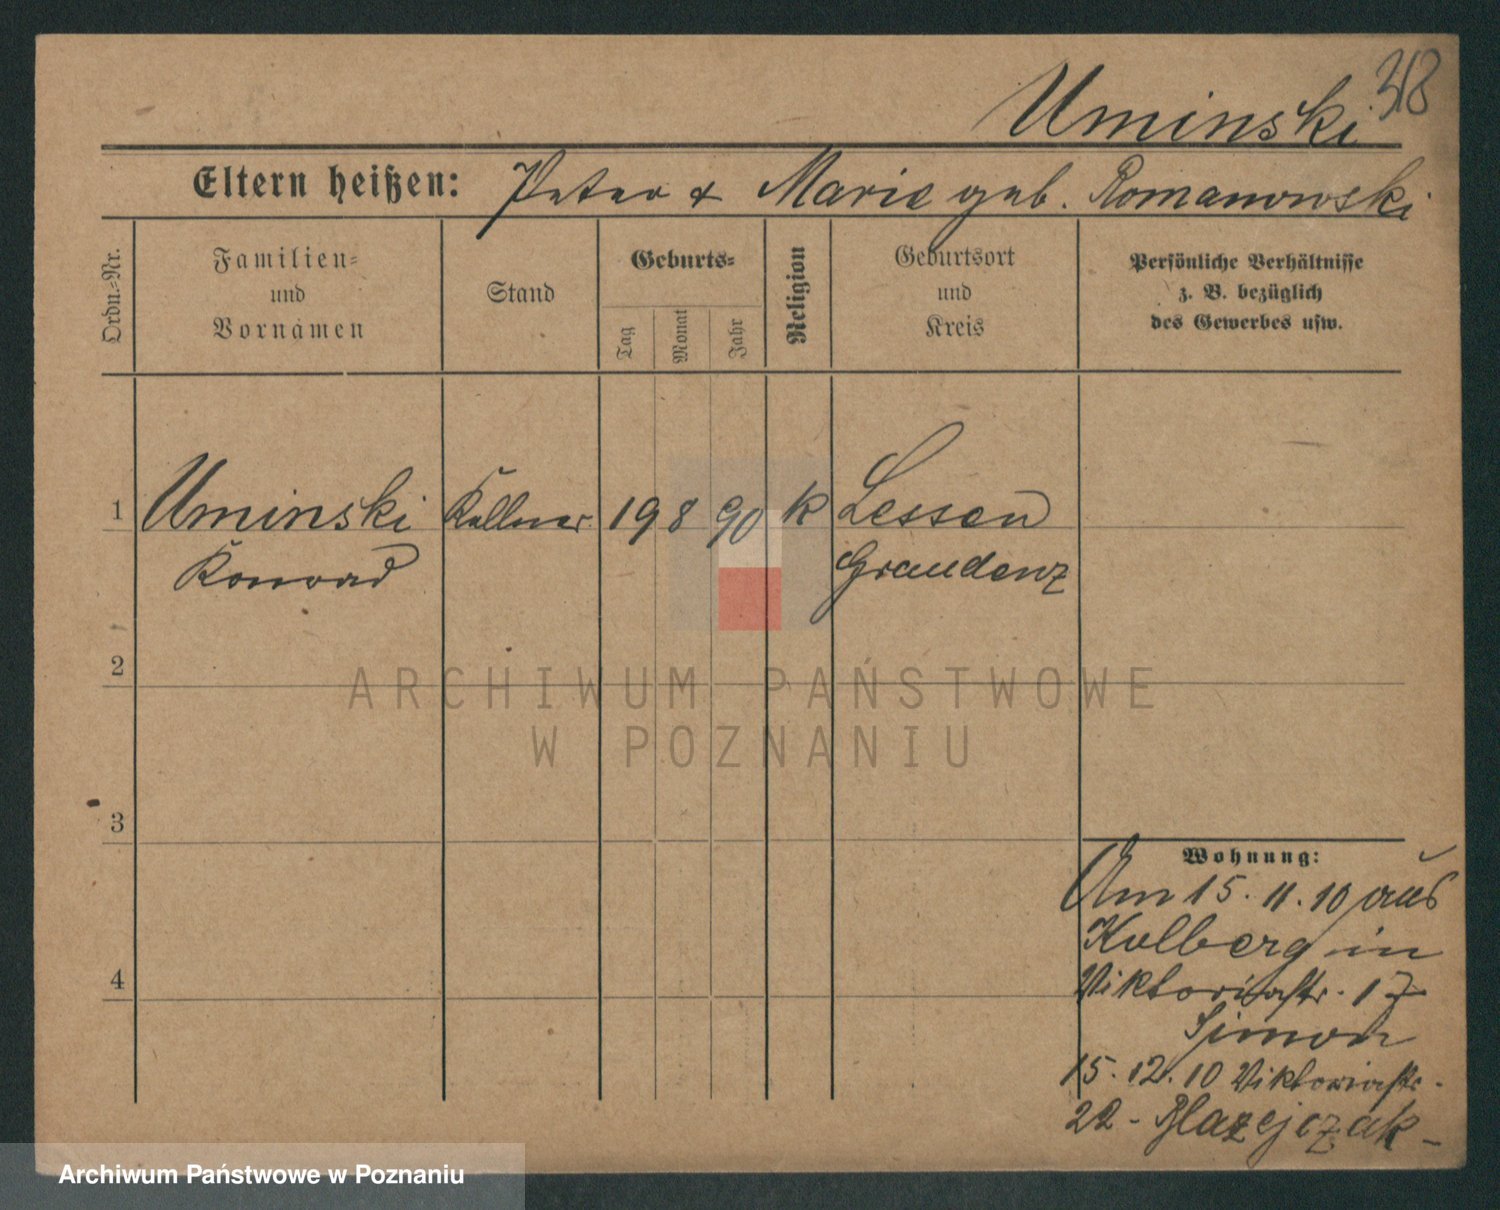 318
Uminski
Eltern heißen: Peter & Marie geb. Romanowski
Ordn.-Nr.
Familien-
und
Vornamen
Stand
Geburts-
Tag
Monat
Jahr
Religion
Geburtsort
und
Kreis
Persönliche Verhältnisse
z. B. bezüglich
des Gewerbes usw.
1 Uminski Kellner 19 8 90 k Lessen
Konrad Graudenz
2
ARCHIWUM PAŃSTWOWE
W POZNANIU
3
Wohnung:
Am 15. 11. 10 aus
Kolberg in
4
Viktoriastr. 17
Simon
15. 12. 10 Viktoriastr.
22 - Blazejczak -
Archiwum Państwowe w Poznaniu